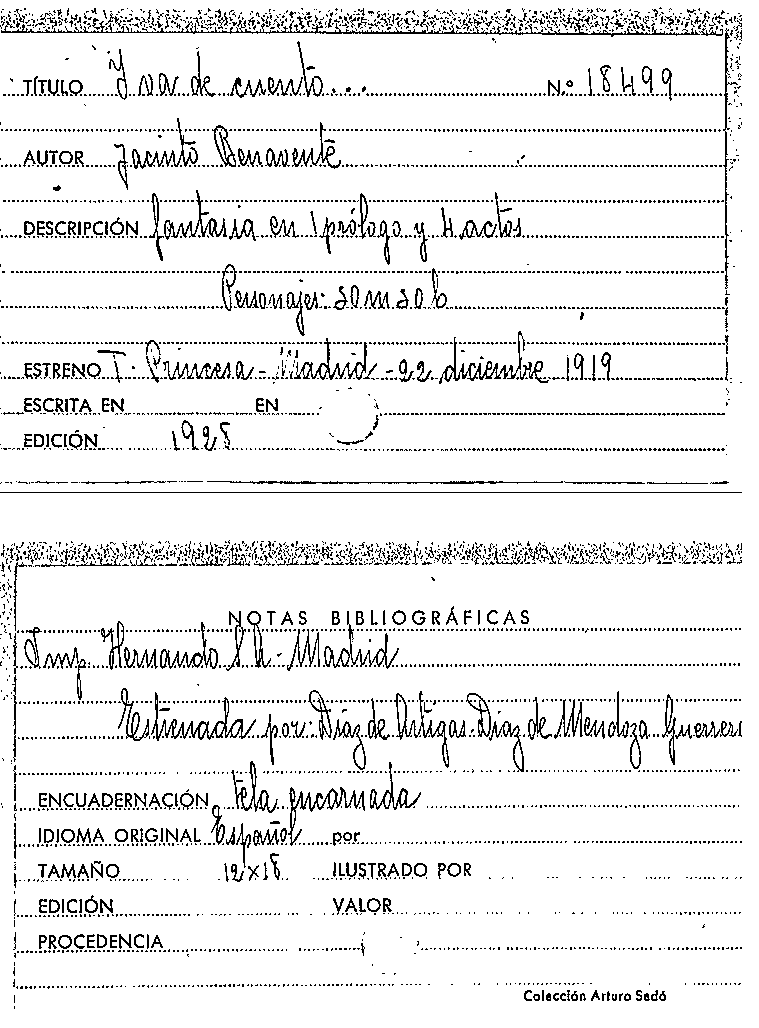 TÍTULO Y va de cuento... N.º 18499
AUTOR Jacinto Benavente
DESCRIPCIÓN fantasia en 1 prólogo y 4 actos
Personajes: 20 m 20 h
ESTRENO T. Princesa - Madrid - 22 diciembre 1919
ESCRITA EN EN
EDICIÓN 1928
NOTAS BIBLIOGRÁFICAS
Imp. Hernando S A - Madrid
Estrenada por: Díaz de Artigas - Díaz de Mendoza Guerrero
ENCUADERNACIÓN tela encarnada
IDIOMA ORIGINAL Español por
TAMAÑO 12 x 18 ILUSTRADO POR
EDICIÓN VALOR
PROCEDENCIA
Colección Arturo Sedó